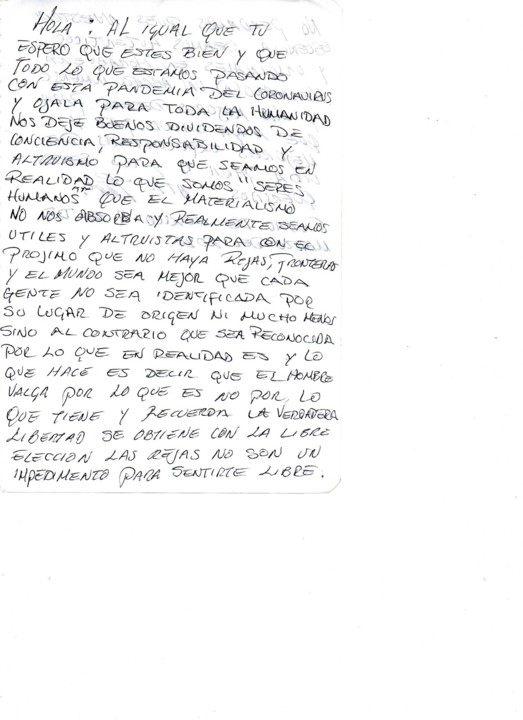 HOLA : AL IGUAL QUE TU
ESPERO QUE ESTES BIEN Y QUE
TODO LO QUE ESTAMOS PASANDO
CON ESTA PANDEMIA DEL CORONAVIRUS
Y OJALA PARA TODA LA HUMANIDAD
NOS DEJE BUENOS DIVIDENDOS DE
CONCIENCIA, RESPONSABILIDAD Y
ALTRUISMO PARA QUE SEAMOS EN
REALIDAD LO QUE SOMOS "SERES
HUMANOS" QUE EL MATERIALISMO
NO NOS ABSORBA Y REALMENTE SEAMOS
UTILES Y ALTRUISTAS PARA CON EL
PROJIMO QUE NO HAYA REJAS, FRONTERAS
Y EL MUNDO SEA MEJOR QUE CADA
GENTE NO SEA IDENTIFICADA POR
SU LUGAR DE ORIGEN NI MUCHO MENOS
SINO AL CONTRARIO QUE SEA RECONOCIDA
POR LO QUE EN REALIDAD ES Y LO
QUE HACE ES DECIR QUE EL HOMBRE
VALGA POR LO QUE ES NO POR LO
QUE TIENE Y RECUERDA LA VERDADERA
LIBERTAD SE OBTIENE CON LA LIBRE
ELECCION LAS REJAS NO SON UN
IMPEDIMENTO PARA SENTIRTE LIBRE.